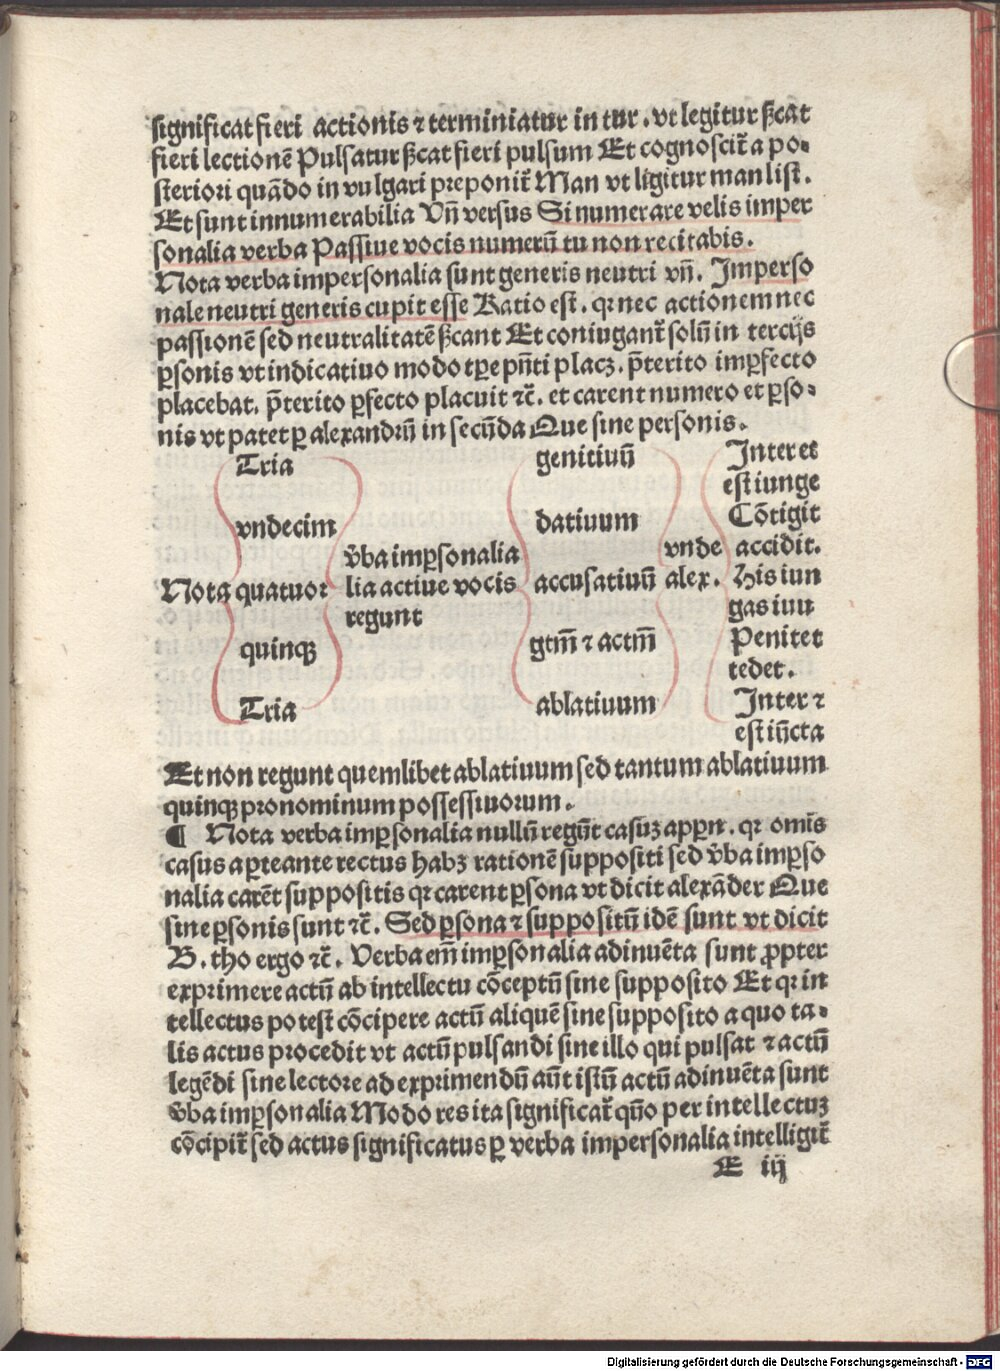 significat fieri actionis ⁊ terminiatur in tur. vt legitur ſꝫcat
fieri lectionē Pulsatur ſꝫcat fieri pulsum Et cognoscit̄ a po⸗
steriori quādo in vulgari preponit̄ Man vt ligitur man list.
Et sunt innumerabilia Vn̄ versus Si numerare velis imper
sonalia verba Passiue vocis numerū tu non recitabis.
Nota verba impersonalia sunt generis neutri vn̄. Imperso
nale neutri generis cupit esse Ratio est. qꝛ nec actionem nec
passionē sed neutralitatē ſꝫcant Et coniugant̄ solū in tercijs
ꝑsonis vt indicatiuo modo tꝑe pn̄ti placꝫ. p̄terito imꝑfecto
placebat. p̄terito ꝑfecto placuit ⁊c̄. et carent numero et ꝑso⸗
nis vt patet ꝑ alexandrū in secūda Que sine personis.
Tria genitiuū Interet
est iunge
vndecim datiuum Cōtigit
v̄ba imꝑsonalia vnde accidit.
Nota quatuor lia actiue vocis accusatiuū alex. His iun
regunt gas iuu
quinqꝫ gtm̄ ⁊ actm̄ Penitet
tedet.
Tria ablatiuum Inter ⁊
est iūcta
Et non regunt quemlibet ablatiuum sed tantum ablatiuum
quinqꝫ pronominum possessiuorum.
¶ Nota verba imꝑsonalia nullū regūt casuꝫ a ꝑꝑn. qꝛ omīs
casus a ꝑte ante rectus habꝫ rationē suppositi sed v̄ba imꝑso
nalia carēt suppositis qꝛ carent ꝑsona vt dicit alexāder Que
sine ꝑsonis sunt ⁊c̄. Sed ꝑsona ⁊ suppositū idē sunt vt dicit
B. tho ergo ⁊c̄. Verba em̄ imꝑsonalia adinuēta sunt ꝓpter
exprimere actū ab intellectu cōceptū sine supposito Et qꝛ in
tellectus potest cōcipere actū aliquē sine supposito a quo ta⸗
lis actus procedit vt actū pulsandi sine illo qui pulsat ⁊ actū
legēdi sine lectore ad exprimendū aūt istū actū adinuēta sunt
v̄ba imꝑsonalia Modo res ita significat̄ qn̄o per intellectuꝫ
cōcipit̄ sed actus significatus ꝑ verba impersonalia intelligit̄
E iij
Digitalisierung gefördert durch die Deutsche Forschungsgemeinschaft - DFG